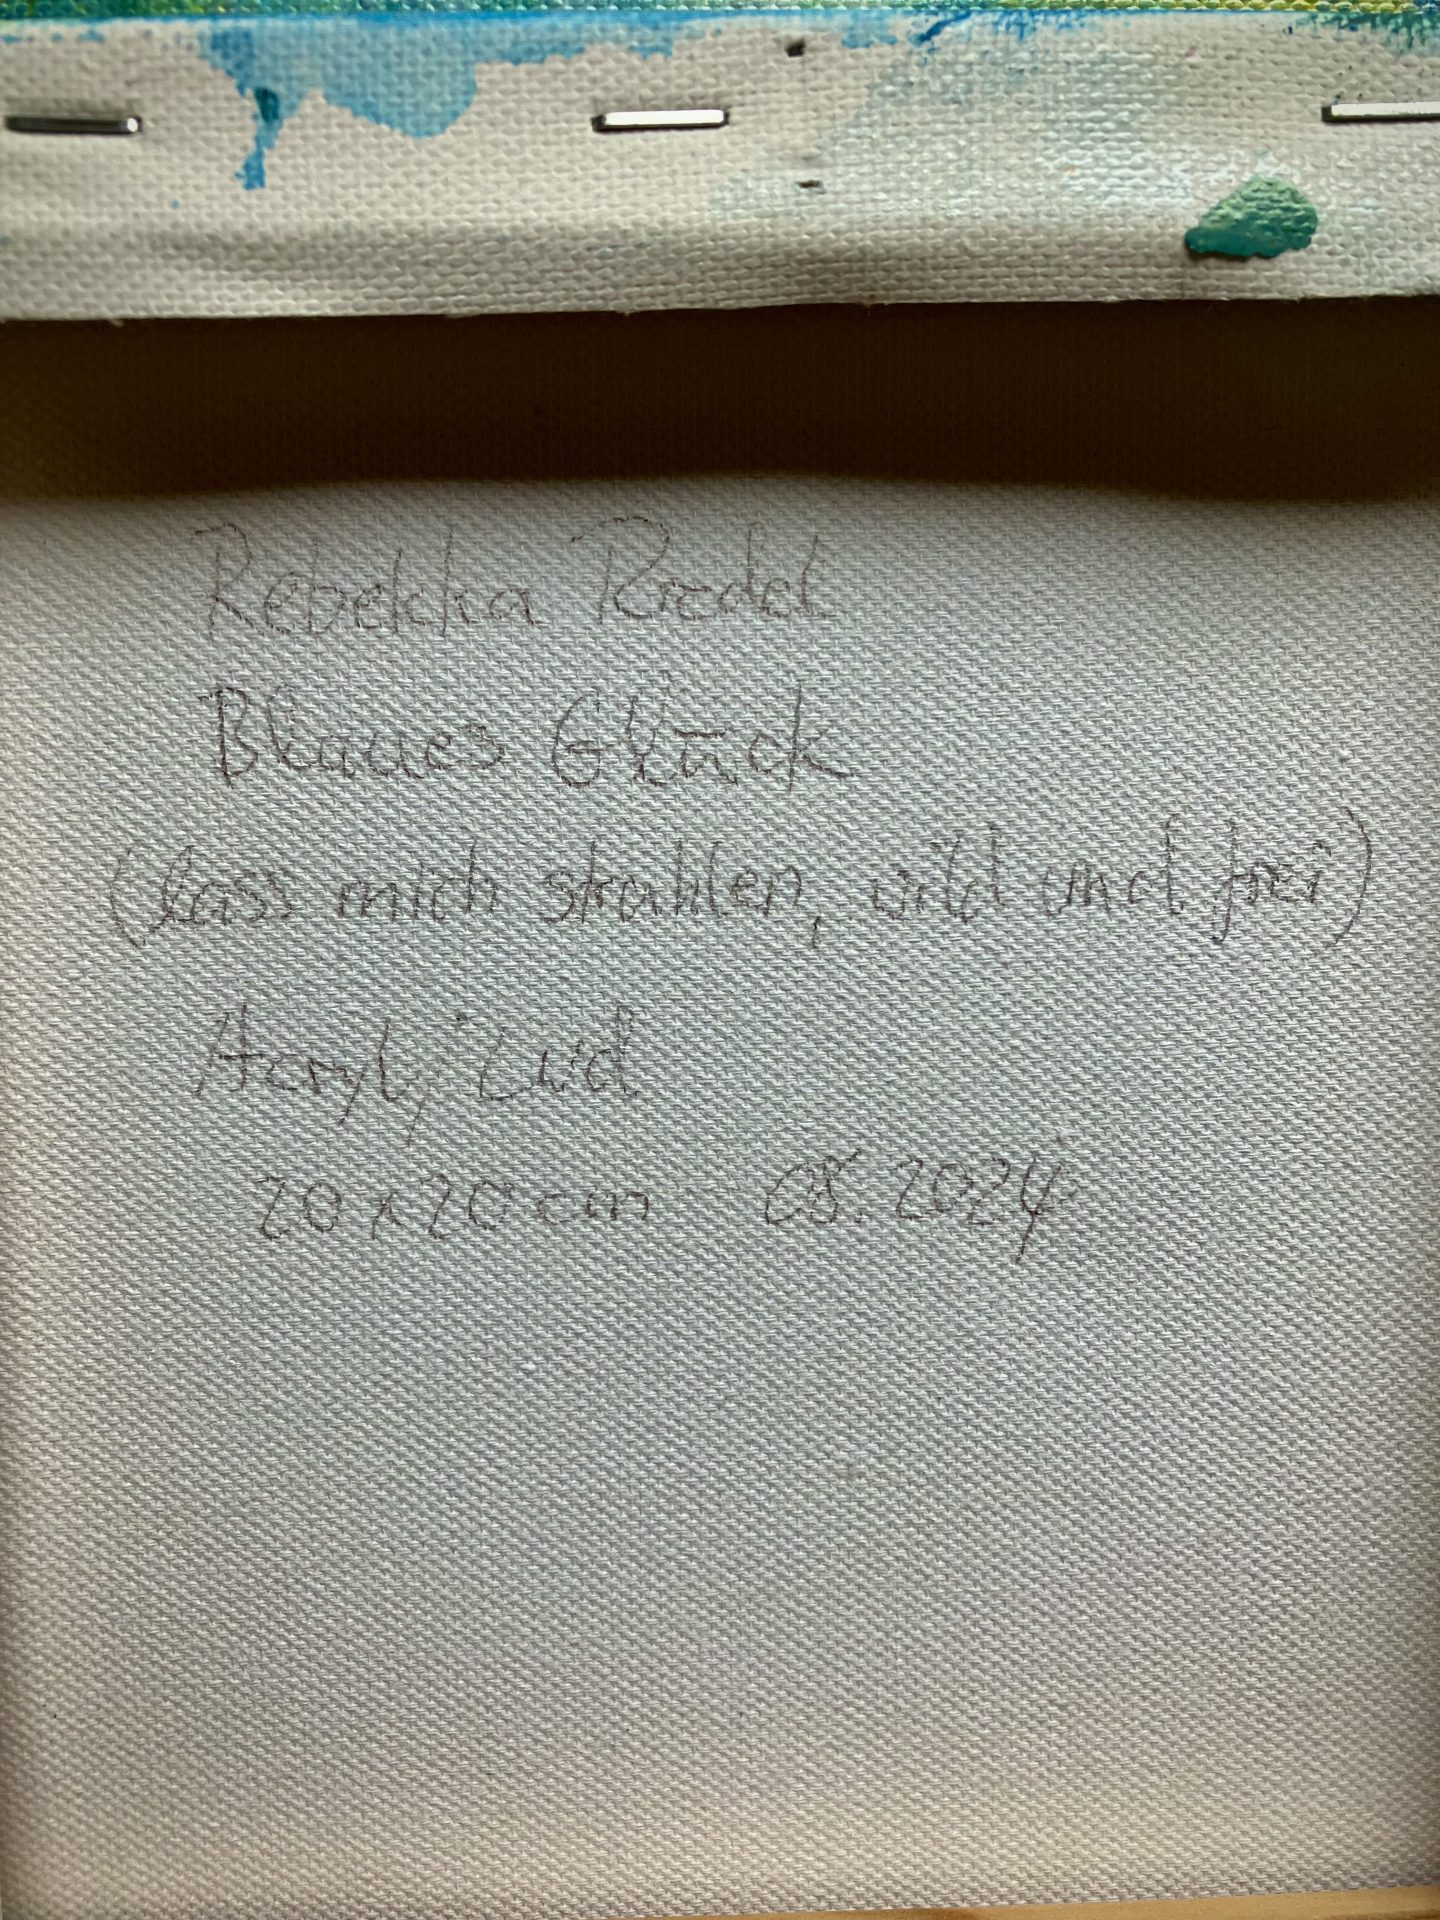 Rebekka
Blaues Glück
(lass mich strahlen, wild und frei)
Acryl,
20 x 20 cm 08. 2024